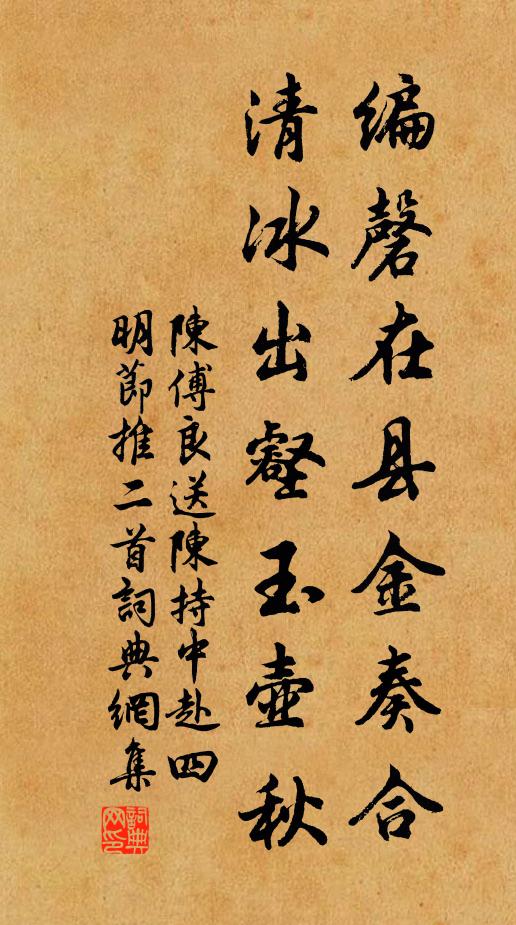 编磬在县金奏合
清冰出壑玉壶秋
陳傅良送陳持中赴四
明節推二首詞典網集
詞典网印